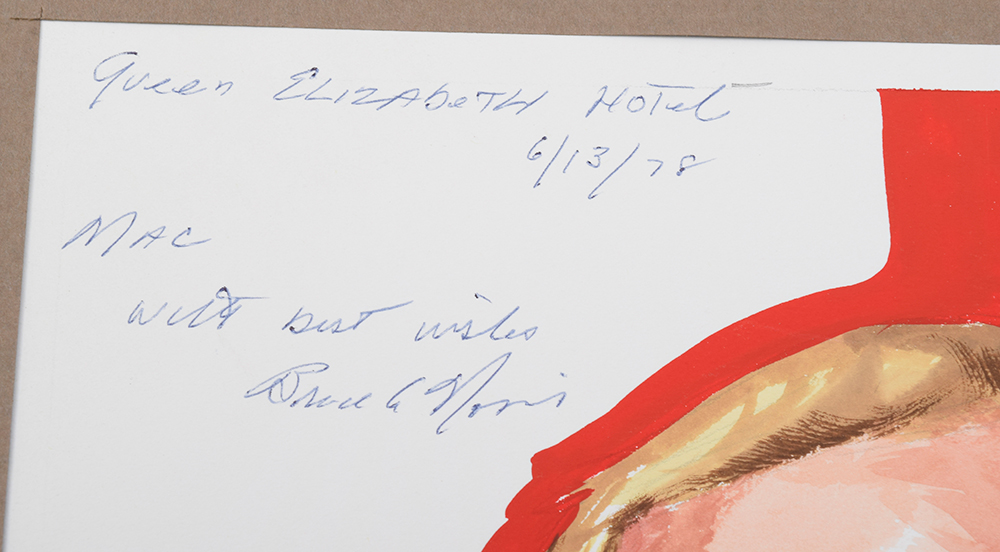 Queen ELIZAbeTH HOTeL
6/13/78
MAC
with best wishes
Bruce A Norris